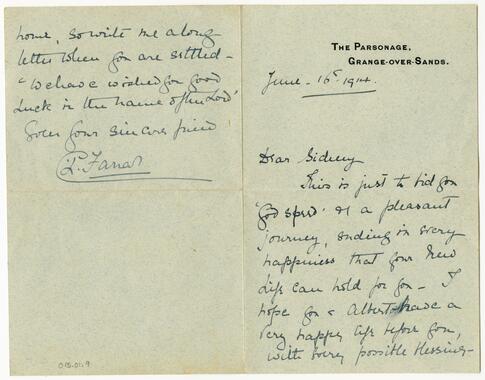 THE PARSONAGE,
GRANGE-OVER-SANDS.
June - 16th 1914.
Dear Sidney
This is just to bid you
'God speed' & a pleasant
journey, ending in every
happiness that your new
life can hold for you - I
hope you & Albert have a
very happy life before you,
with every possible blessing -
home, so write me a long
letter when you are settled -
"We have wished you good
Luck in the name of the Lord'
Ever your sincere friend
L. Farrar
015.01.9